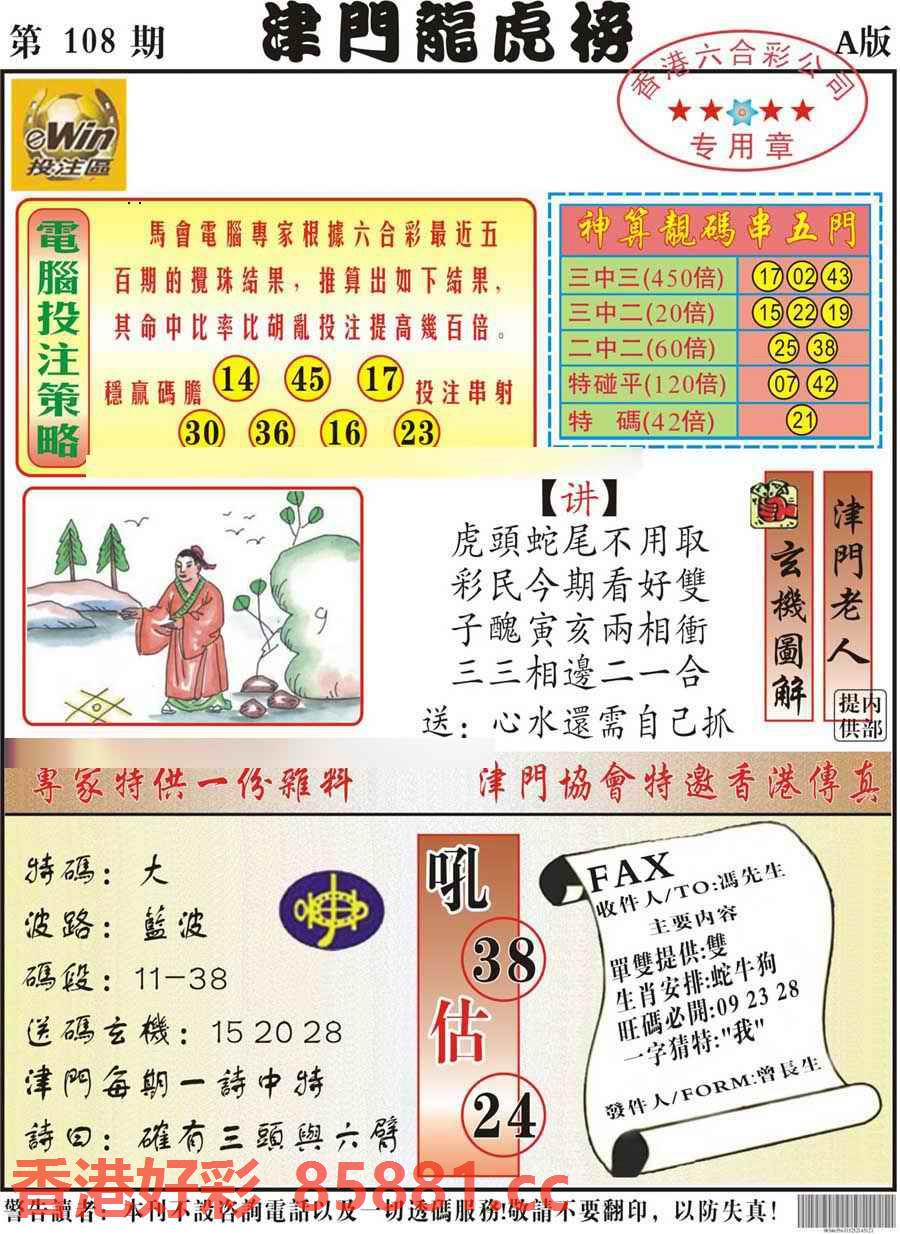 第 108 期
津門龍虎榜
A版
香港六合彩公司
专用章
eWin
投注區
電腦投注策略
馬會電腦專家根據六合彩最近五
百期的攪珠結果，推算出如下結果，
其命中比率比胡亂投注提高幾百倍。
穩贏碼膽 14 45 17 投注串射
30 36 16 23
神算靚碼串五門
三中三(450倍) 17 02 43
三中二(20倍) 15 22 19
二中二(60倍) 25 38
特碰平(120倍) 07 42
特 碼(42倍) 21
【讲】
虎頭蛇尾不用取
彩民今期看好雙
子醜寅亥兩相衝
三三相邊二一合
送：心水還需自己抓
玄機圖解
津門老人
内部提供
專家特供一份雜料
津門協會特邀香港傳真
特碼：大
波路：藍波
碼段：11-38
送碼玄機：15 20 28
津門每期一詩中特
詩曰：確有三頭與六臂
吼
38
估
24
FAX
收件人/TO:馮先生
主要内容
單雙提供:雙
生肖安排:蛇牛狗
旺碼必開:09 23 28
一字猜特:"我"
發件人/FORM:曾長生
香港好彩 85881.cc
警告讀者：本刊不設咨詢電話以及一切透碼服務!敬請不要翻印，以防失真！